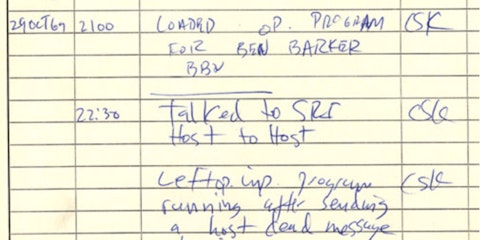 29OCT69 2100 LOADED OP. PROGRAM CSK
FOR BEN BARKER
BBN
22:30 Talked to SRI CSK
Host to Host
Left op. imp. program CSK
running after sending
a host dead message